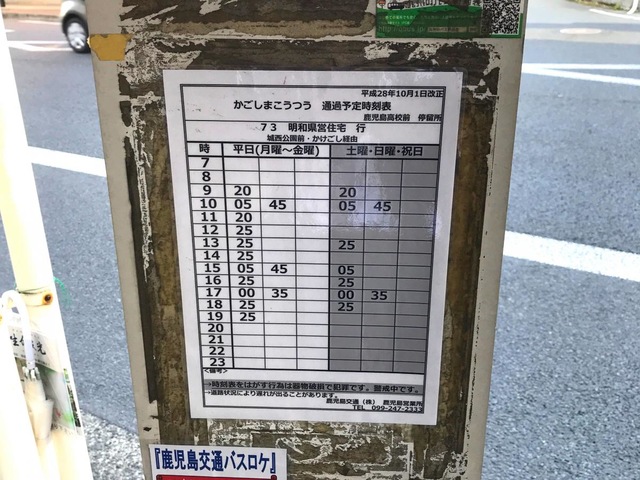 平成28年10月1日改正
かごしまこうつう 通過予定時刻表
鹿児島高校前 停留所
73 明和県営住宅 行
城西公園前・かけごし経由
時 平日(月曜～金曜) 土曜・日曜・祝日
7
8
9 20 20
10 05 45 05 45
11 20
12 25
13 25 25
14 25
15 05 45 05
16 25 25
17 00 35 00 35
18 25 25
19 25
20
21
22
23
<備考>
→時刻表をはがす行為は器物破損で犯罪です。警戒中です。
→道路状況により遅れが出ることがあります。
鹿児島交通（株） 鹿児島営業所
TEL 099-247-2333
『鹿児島交通バスロケ』